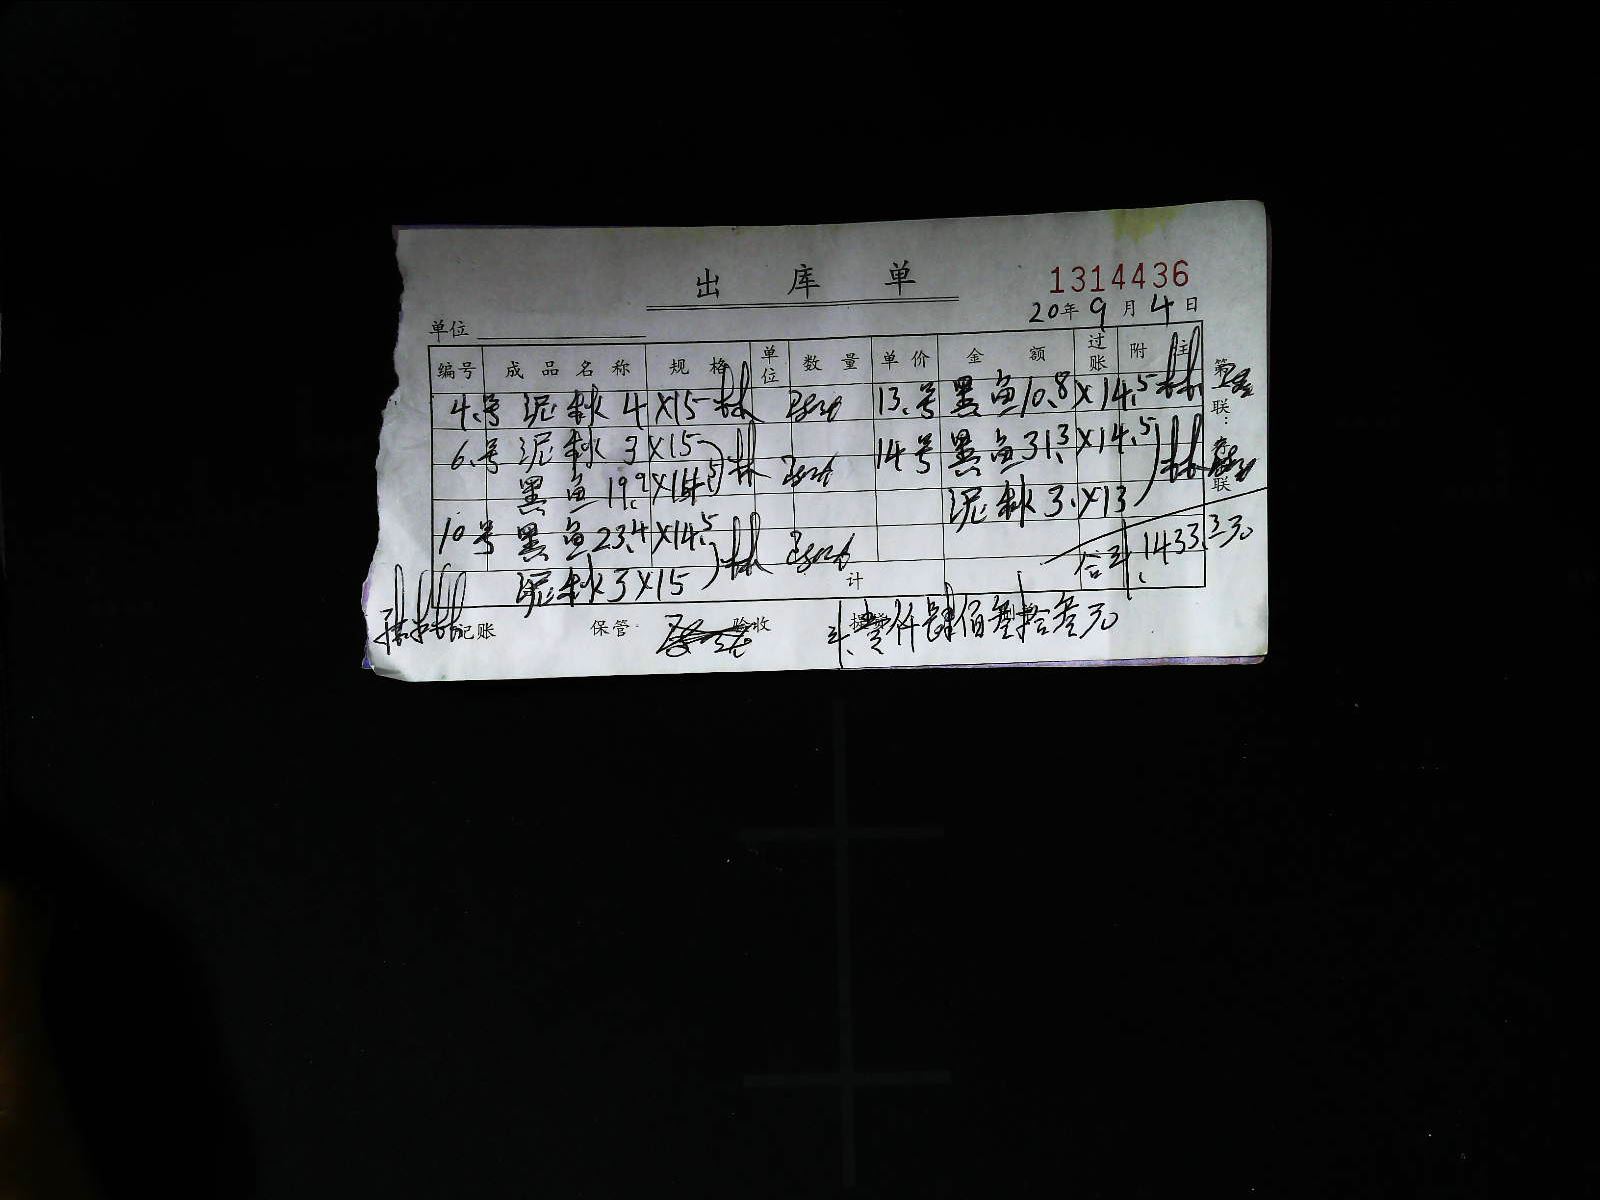 出 库 单
1314436
单位
20年9月4日
编号 成品名称 规格 单位 数量 单价 金额 过账 附注
4.号 泥秋 4×15 林 13.号 黑鱼10.8×14.5 林
6.号 泥秋 3×15 林 14号 黑鱼31.3×14.5 林
黑鱼19.9×14.5 泥秋3.×13
10号 黑鱼23.4×14.5 林
泥秋3×15 计 合计 1433.3元
记账 保管 验收 壹仟肆佰叁拾叁元
第
联:
联